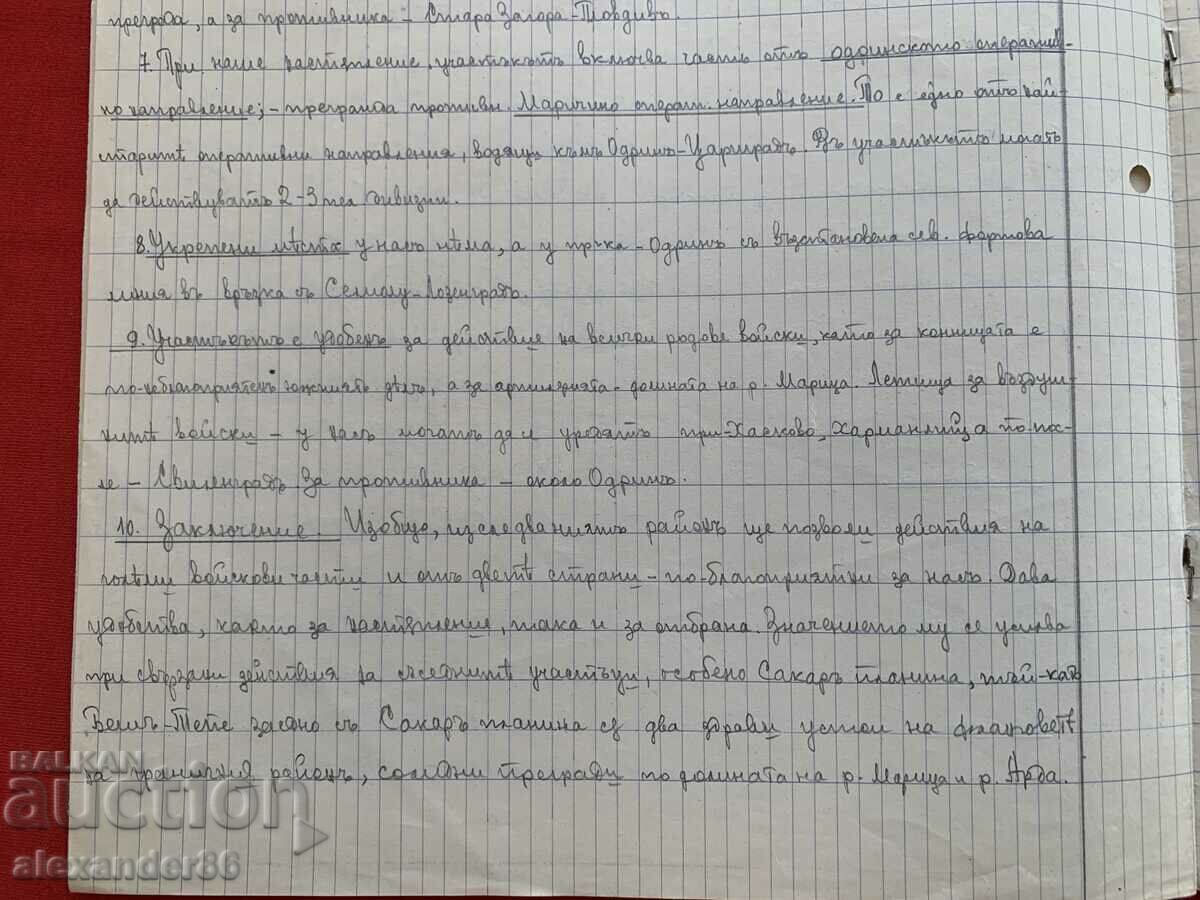 преграда, а за противника – Стара Загора – Пловдивъ.
7. При наше настѫпление, участъкътъ включва часть отъ одринското оператив-
но направление; – преграда противн. Маричино операт. направление. То е едно отъ най-
старитѣ оперативни направления, водящи къмъ Одринъ – Цариградъ. Въ участъкътъ могатъ
да действуватъ 2–3 дивизии.
8. Укрепени мѣста у насъ нѣма, а у тѣхъ – Одринъ съ възстановена сев. фортова
линия въ връзка съ – Лозенградъ.
9. Участъкътъ е удобенъ за действие на всички родове войски, като за конницата е
по-благоприятенъ южниятъ дѣлъ, а за артилерията – долината на р. Марица. Летища за въздуш-
нитѣ войски – у насъ могатъ да се уредятъ при Хасково, Харманлий, а по-пос-
ле – Свиленградъ. За противника – около Одринъ.
10. Заключение. Изобщо, изследваниятъ районъ ще позволи действия на
голѣми войскови части и отъ дветѣ страни – по-благоприятни за насъ. Дава
удобства, както за настѫпление, така и за отбрана. Значението му се усилва
при свързани действия за съседнитѣ участъци, особено Сакаръ планина, тъй като
Бешъ-Тепе заедно съ Сакаръ планина сѫ два здрави устои на фланговетѣ
за граничния районъ, солидни прегради по долината на р. Марица и р. Арда.
BALKAN
auction
alexander86